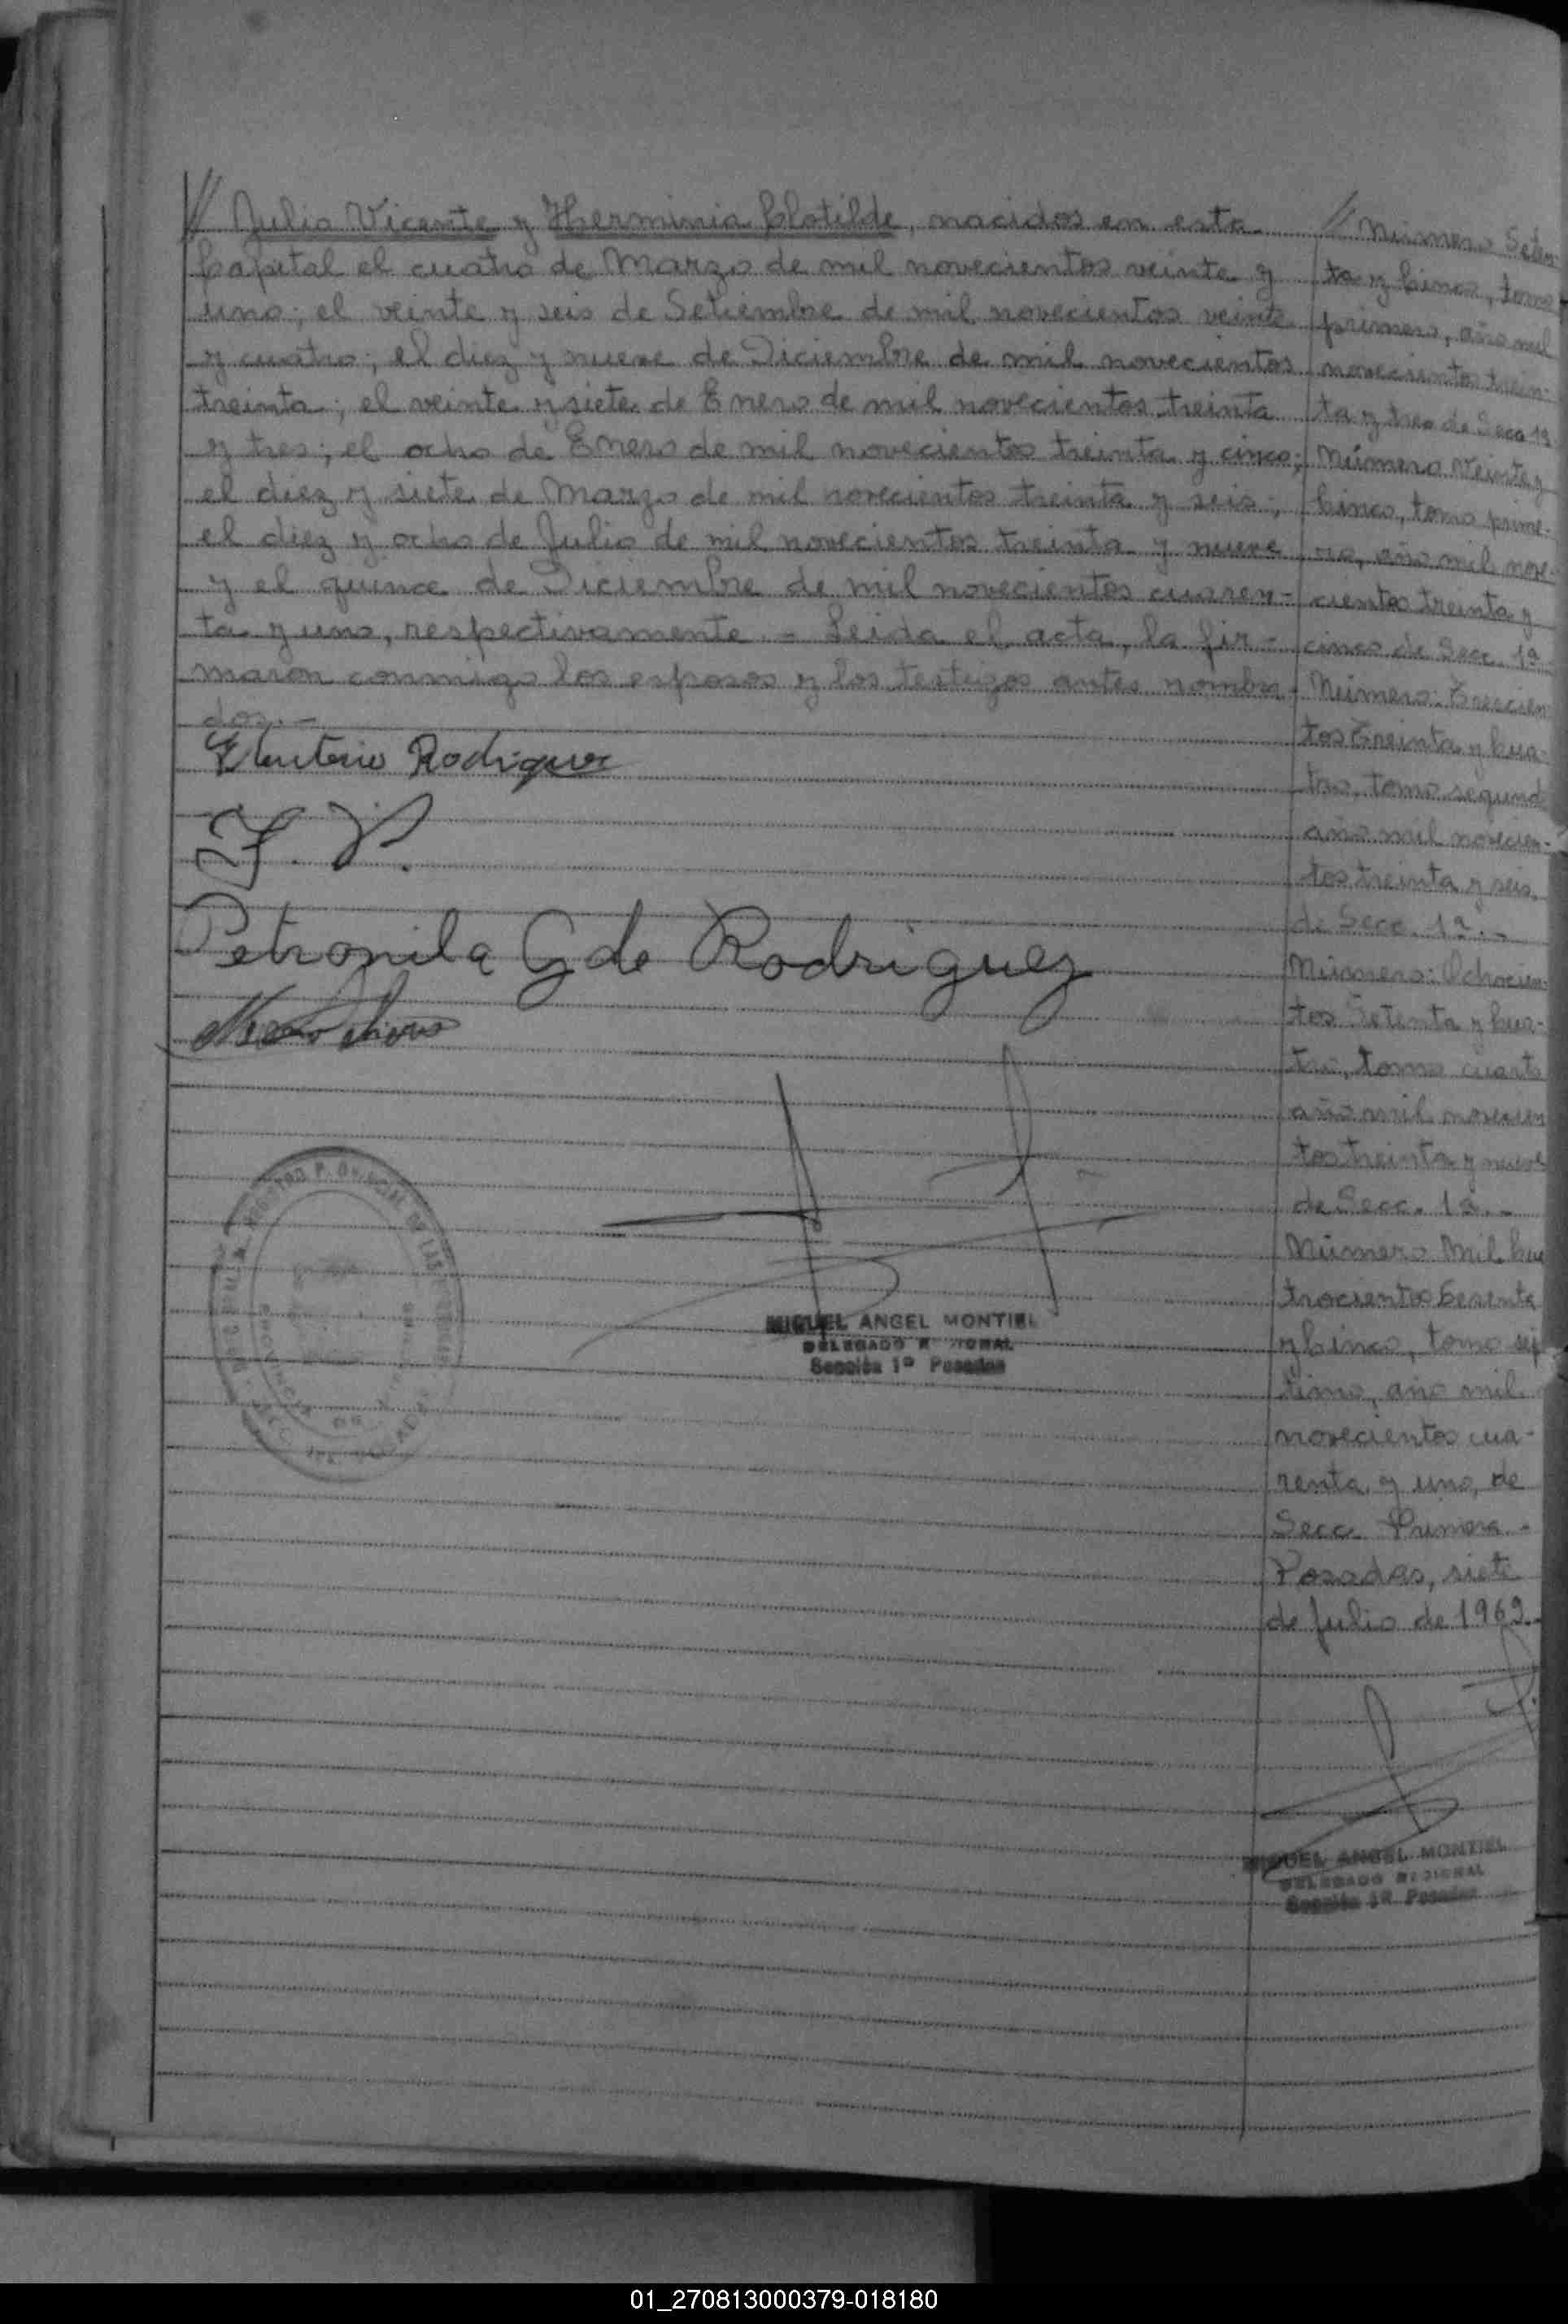 // Julio Vicente y Herminia Clotilde, nacidos en esta
Capital el cuatro de Marzo de mil novecientos veinte y
uno; el veinte y seis de Setiembre de mil novecientos veinte
y cuatro; el diez y nueve de Diciembre de mil novecientos
treinta; el veinte y siete de Enero de mil novecientos treinta
y tres; el ocho de Enero de mil novecientos treinta y cinco;
el diez y siete de Marzo de mil novecientos treinta y seis;
el diez y ocho de Julio de mil novecientos treinta y nueve
y el quince de Diciembre de mil novecientos cuaren-
ta y uno, respectivamente. - Leida el acta, la fir-
maron conmigo los esposos y los testigos antes nombra-
dos. -
Eleuterio Rodriguez
F. V.
Petronila G de Rodriguez
MIGUEL ANGEL MONTIEL
DELEGADO REGIONAL
Sección 1ª Posadas
// Número Seten-
ta y Cinco, tomo
primero, año mil
novecientos trein-
ta y tres de Secc 1ª
Número Veinte y
Cinco, tomo prime-
ro, año mil nove-
cientos treinta y
cinco de Secc. 1ª
Número: Trescien
tos Treinta y Cua-
tro, tomo segundo
año mil novecien-
tos treinta y seis.
de Secc. 1ª. -
Número: Ochocien-
tos Setenta y Cua-
tro, tomo cuarto
año mil novecien
tos treinta y nueve
de Secc. 1ª. -
Número Mil Cua
trocientos Sesenta
y Cinco, tomo sép
timo, año mil
novecientos cua-
renta y uno, de
Secc. Primera -
Posadas, siete
de Julio de 1969.-
MIGUEL ANGEL MONTIEL
DELEGADO REGIONAL
Sección 1ª Posadas
01_270813000379-018180